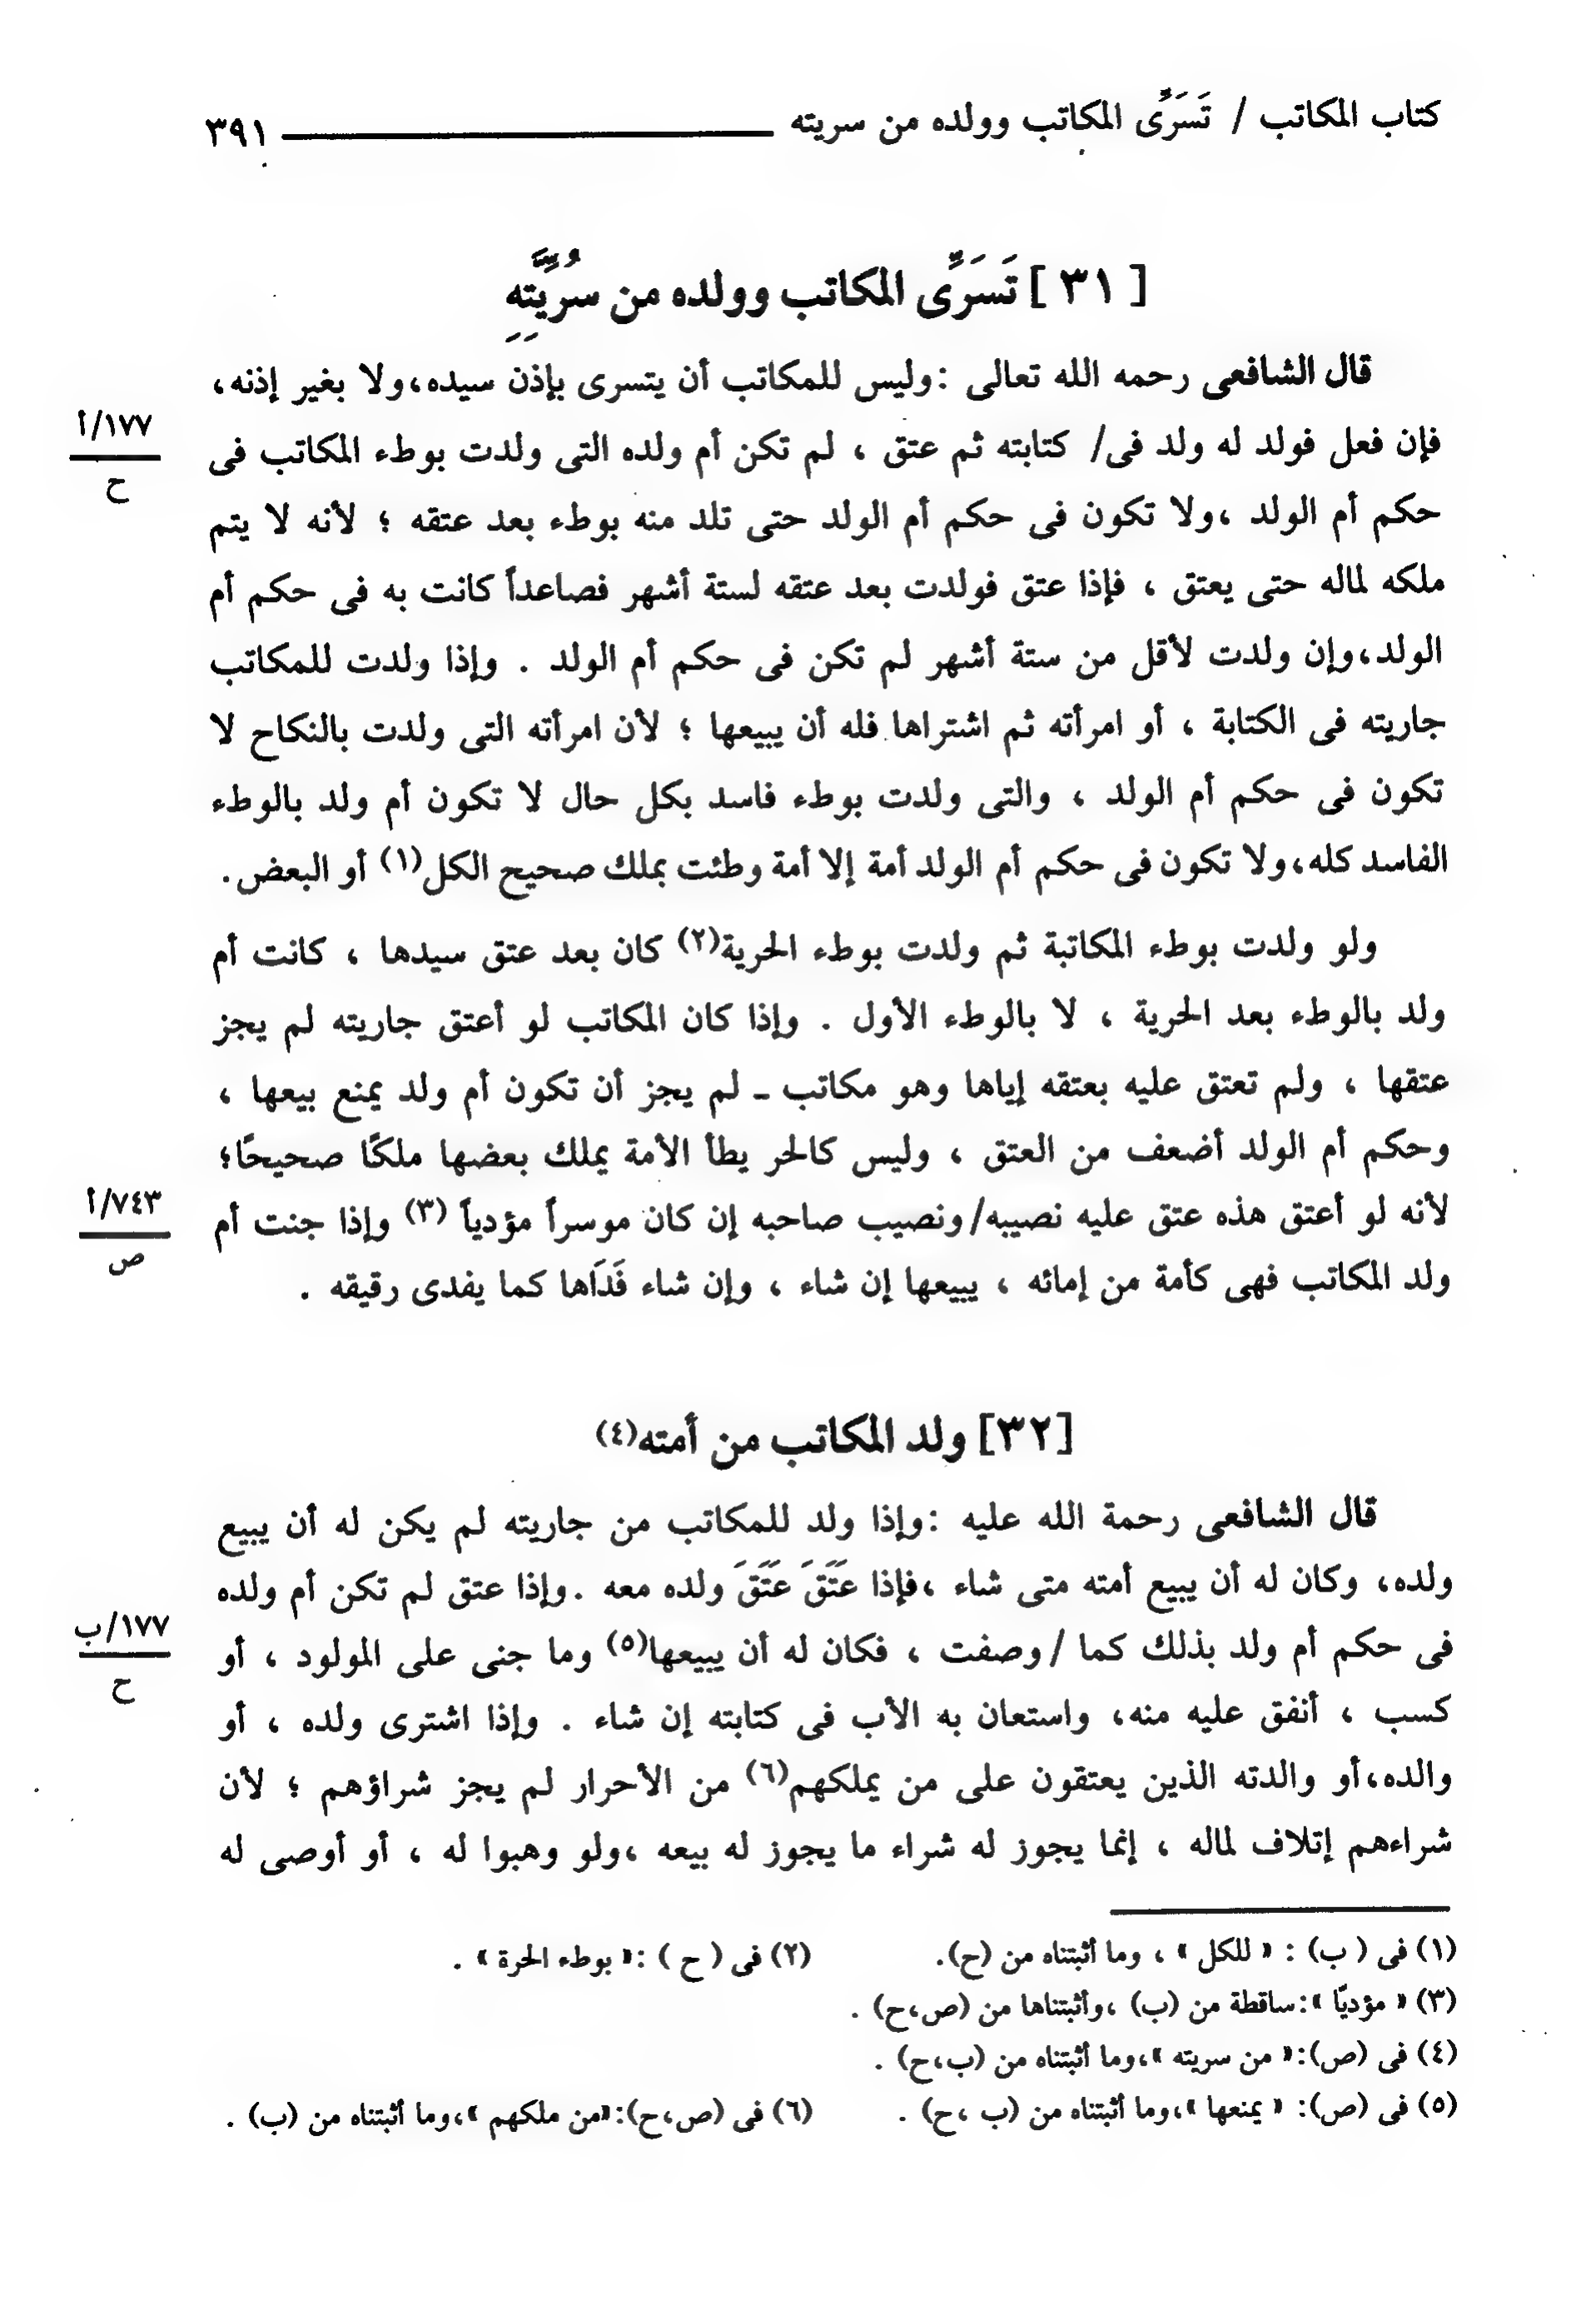 كتاب المكاتب / تَسَرِّى المكاتب وولده من سريته ــــــ ٣٩١
[ ٣١ ] تَسَرِّى المكاتب وولده من سُرِّيَّتِهِ
قال الشافعى رحمه الله تعالى :وليس للمكاتب أن يتسرى بإذن سيده،ولا بغير إذنه،
١٧٧/أ
ح
فإن فعل فولد له ولد فى/ كتابته ثم عتق ، لم تكن أم ولده التى ولدت بوطء المكاتب فى
حكم أم الولد ،ولا تكون فى حكم أم الولد حتى تلد منه بوطء بعد عتقه ؛ لأنه لا يتم
ملكه لماله حتى يعتق ، فإذا عتق فولدت بعد عتقه لستة أشهر فصاعداً كانت به فى حكم أم
الولد،وإن ولدت لأقل من ستة أشهر لم تكن فى حكم أم الولد . وإذا ولدت للمكاتب
جاريته فى الكتابة ، أو امرأته ثم اشتراها فله أن يبيعها ؛ لأن امرأته التى ولدت بالنكاح لا
تكون فى حكم أم الولد ، والتى ولدت بوطء فاسد بكل حال لا تكون أم ولد بالوطء
الفاسد كله،ولا تكون فى حكم أم الولد أمة إلا أمة وطئت بملك صحيح الكل(١) أو البعض.
ولو ولدت بوطء المكاتبة ثم ولدت بوطء الحرية(٢) كان بعد عتق سيدها ، كانت أم
ولد بالوطء بعد الحرية ، لا بالوطء الأول . وإذا كان المكاتب لو أعتق جاريته لم يجز
عتقها ، ولم تعتق عليه بعتقه إياها وهو مكاتب ـ لم يجز أن تكون أم ولد يمنع بيعها ،
وحكم أم الولد أضعف من العتق ، وليس كالحر يطأ الأمة يملك بعضها ملكًا صحيحًا؛
٧٤٣/أ
ص
لأنه لو أعتق هذه عتق عليه نصيبه/ونصيب صاحبه إن كان موسراً مؤدياً (٣) وإذا جنت أم
ولد المكاتب فهى كأمة من إمائه ، يبيعها إن شاء ، وإن شاء فَدَاها كما يفدى رقيقه .
[٣٢] ولد المكاتب من أمته(٤)
قال الشافعى رحمة الله عليه :وإذا ولد للمكاتب من جاريته لم يكن له أن يبيع
ولده، وكان له أن يبيع أمته متى شاء ،فإذا عَتَقَ عَتَقَ ولده معه .وإذا عتق لم تكن أم ولده
١٧٧/ب
ح
فى حكم أم ولد بذلك كما /وصفت ، فكان له أن يبيعها(٥) وما جنى على المولود ، أو
كسب ، أنفق عليه منه، واستعان به الأب فى كتابته إن شاء . وإذا اشترى ولده ، أو
والده،أو والدته الذين يعتقون على من يملكهم(٦) من الأحرار لم يجز شراؤهم ؛ لأن
شراءهم إتلاف لماله ، إنما يجوز له شراء ما يجوز له بيعه ،ولو وهبوا له ، أو أوصى له
(١) فى ( ب) : « للكل » ، وما أثبتناه من (ح). (٢) فى ( ح ) :« بوطء الحرة » .
(٣) « مؤديًا »:ساقطة من (ب) ،وأثبتناها من (ص،ح) .
(٤) فى (ص):« من سريته »،وما أثبتناه من (ب،ح) .
(٥) فى (ص): « يمنعها »،وما أثبتناه من (ب ،ح) . (٦) فى (ص،ح):«من ملكهم »،وما أثبتناه من (ب) .